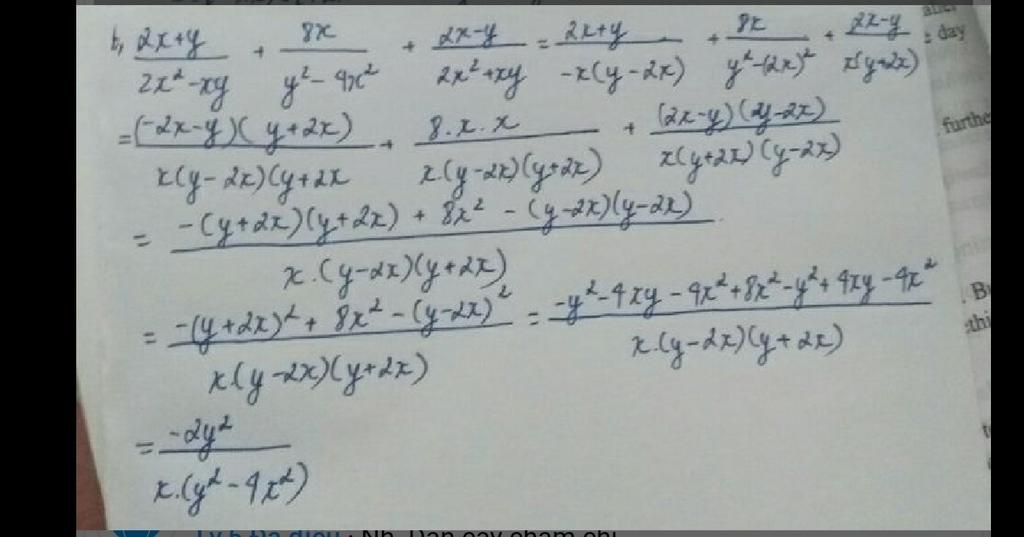 b, (2x+y)/(2x²-xy) + 8x/(y²-4x²) + (2x-y)/(2x²+xy) = (2x+y)/(-x(y-2x)) + 8x/(y²-(2x)²) + (2x-y)/(x(y+2x)) =
= (-2x-y)(y+2x)/(x(y-2x)(y+2x) + 8.x.x/(x.(y-2x)(y+2x)) + (2x-y)(y-2x)/(x(y+2x)(y-2x))
= (-(y+2x)(y+2x) + 8x² - (y-2x)(y-2x))/(x.(y-2x)(y+2x))
= (-(y+2x)² + 8x² - (y-2x)²)/(x.(y-2x)(y+2x)) = (-y²-4xy-4x²+8x²-y²+4xy-4x²)/(x.(y-2x)(y+2x))
= -2y²/(x.(y²-4x²))
day
furthe